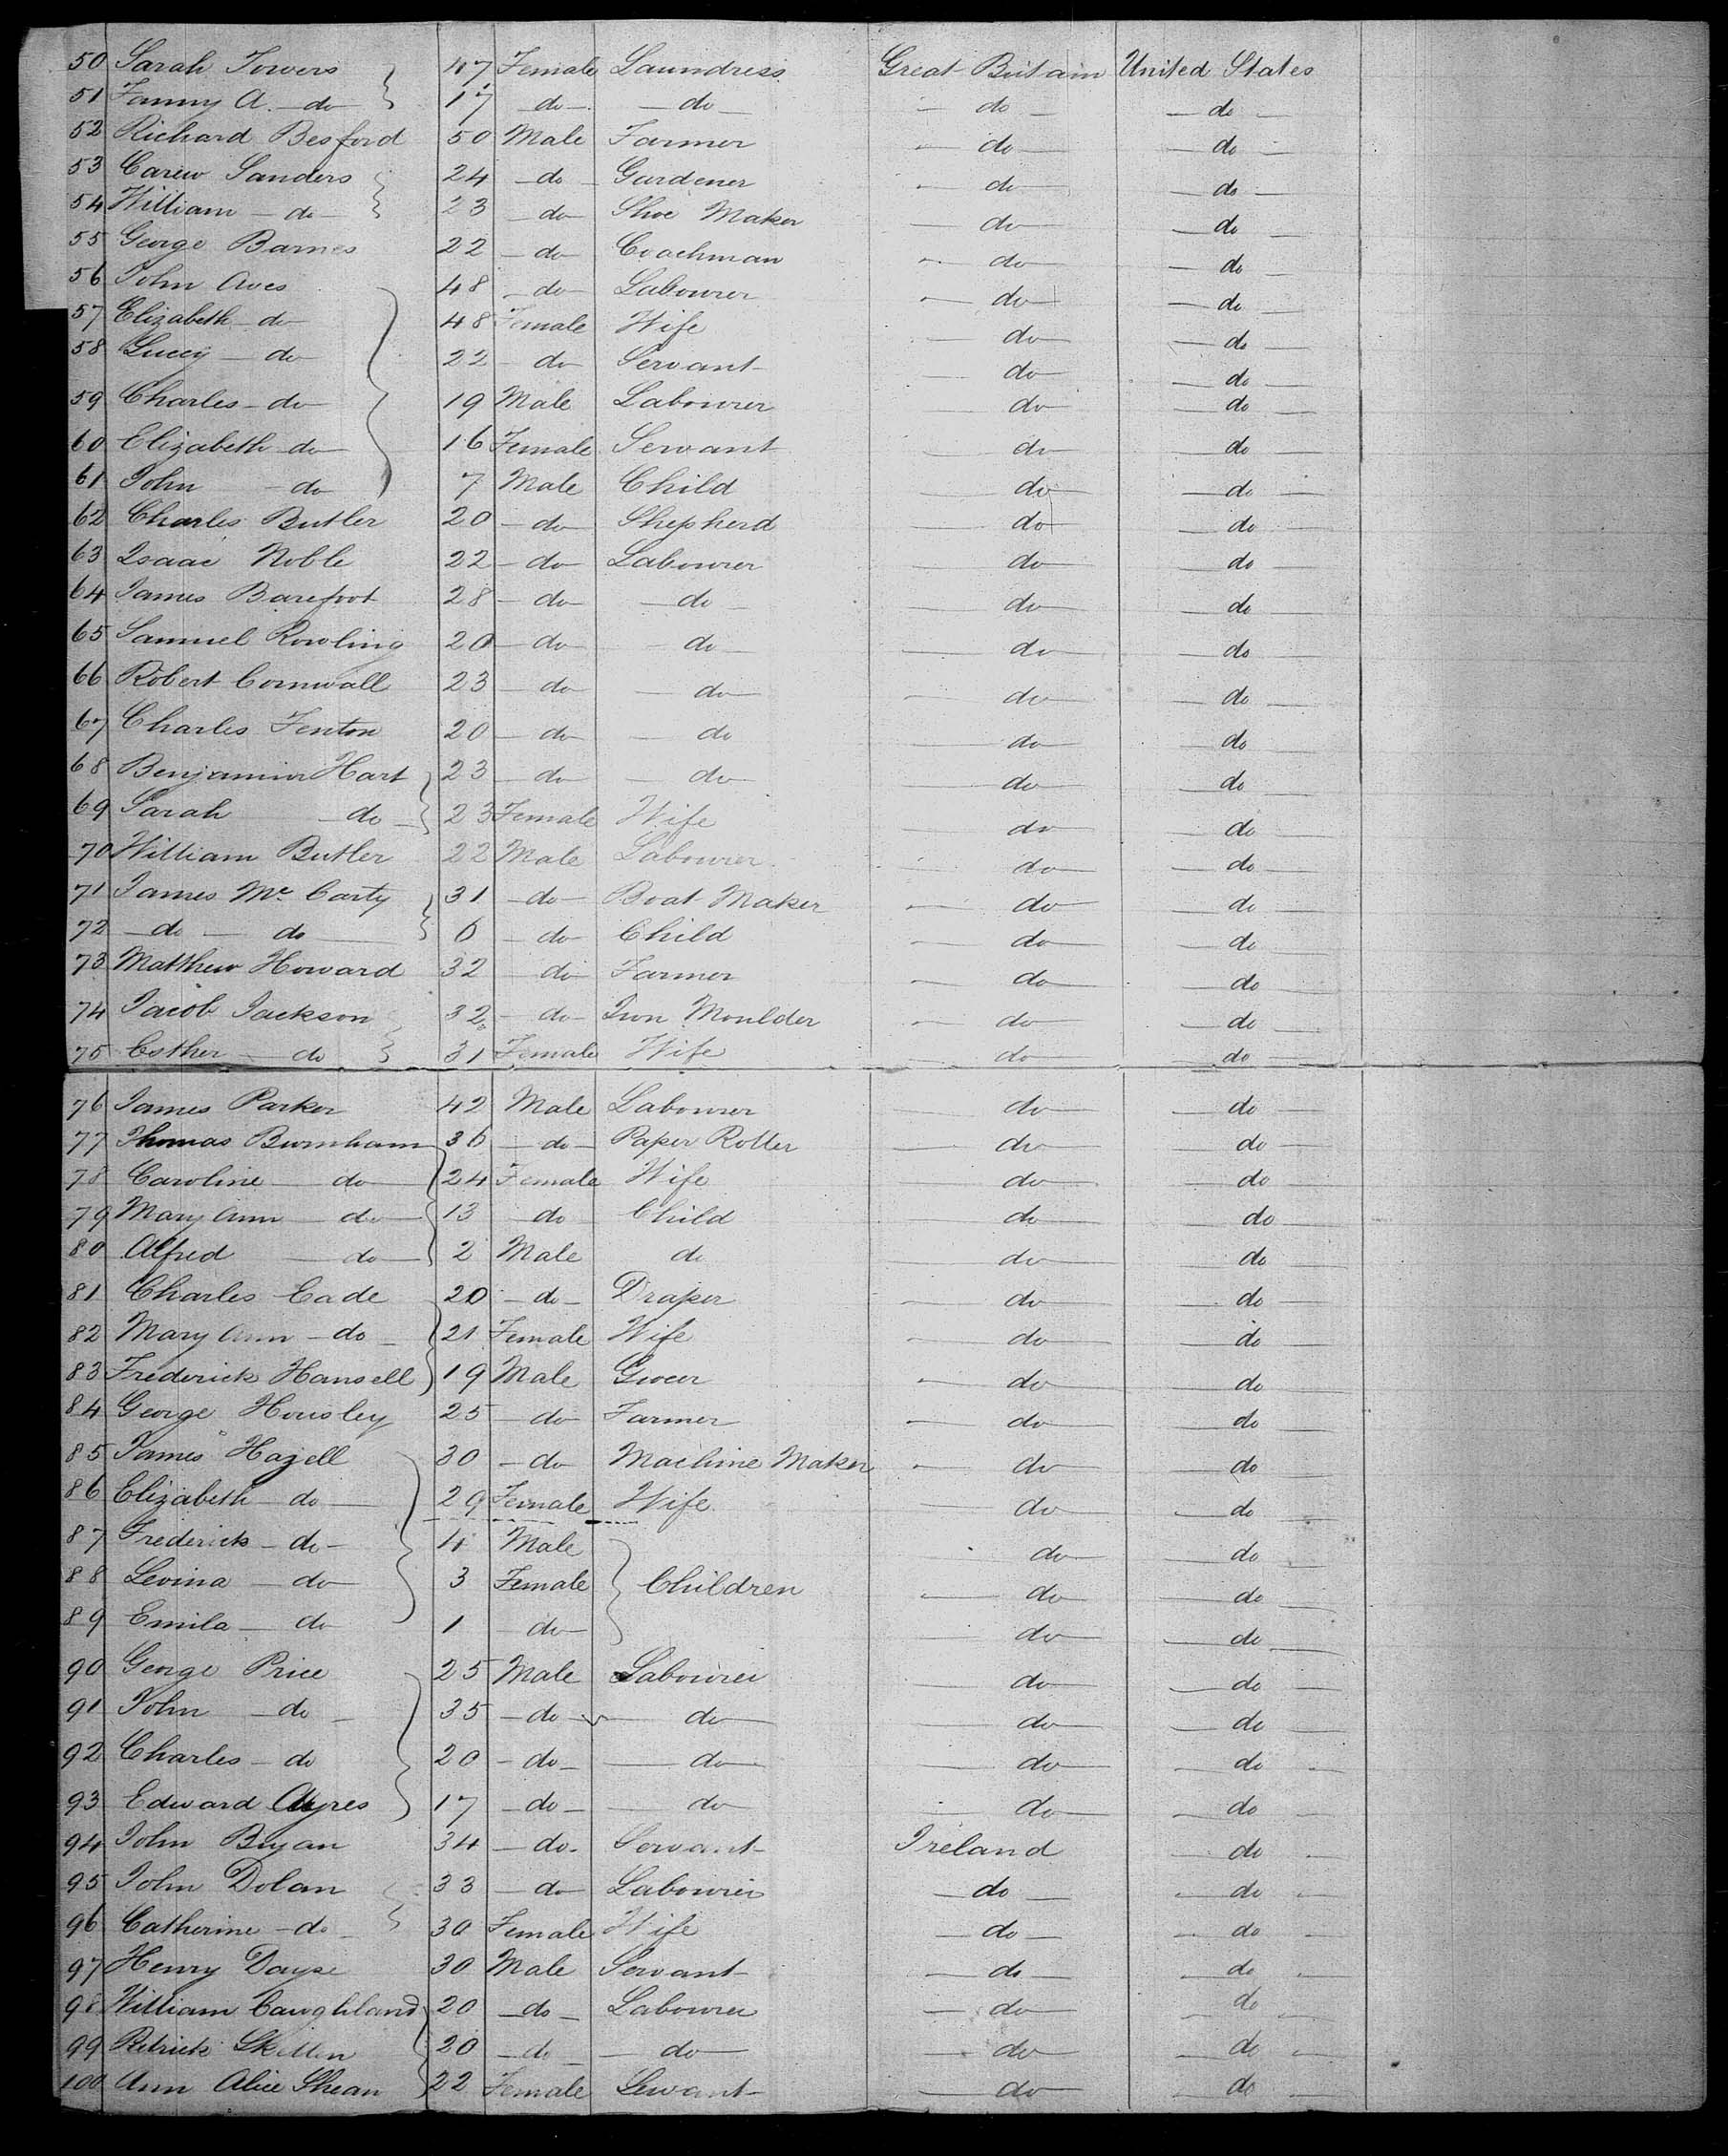 50 Sarah Towers 47 Female Laundress Great Britain United States
51 Fanny A. do 17 do do do do
52 Richard Besford 50 Male Farmer do do
53 Carew Sanders 24 do Gardener do do
54 William do 23 do Shoe Maker do do
55 George Barnes 22 do Coachman do do
56 John Aves 48 do Labourer do do
57 Elizabeth do 48 Female Wife do do
58 Lucey do 22 do Servant do do
59 Charles do 19 Male Labourer do do
60 Elizabeth do 16 Female Servant do do
61 John do 7 Male Child do do
62 Charles Butler 20 do Shepherd do do
63 Isaac Noble 22 do Labourer do do
64 James Barefoot 28 do do do do
65 Samuel Rowling 20 do do do do
66 Robert Cornwall 23 do do do do
67 Charles Fenton 20 do do do do
68 Benjamin Hart 23 do do do do
69 Sarah do 23 Female Wife do do
70 William Butler 22 Male Labourer do do
71 James Mc Carty 31 do Boat Maker do do
72 do do 6 do Child do do
73 Matthew Howard 32 do Farmer do do
74 Jacob Jackson 32 do Iron Moulder do do
75 Esther do 31 Female Wife do do
76 James Parker 42 Male Labourer do do
77 Thomas Burnham 36 do Paper Rotter do do
78 Caroline do 24 Female Wife do do
79 Mary Ann do 13 do Child do do
80 Alfred do 2 Male do do do
81 Charles Cade 20 do Draper do do
82 Mary Ann do 21 Female Wife do do
83 Frederick Hansell 19 Male Grocer do do
84 George Housley 25 do Farmer do do
85 James Hazell 30 do Machine Maker do do
86 Elizabeth do 29 Female Wife do do
87 Frederick do 4 Male do do
88 Levina do 3 Female Children do do
89 Emila do 1 do do do
90 George Price 25 Male Labourer do do
91 John do 35 do do do do
92 Charles do 20 do do do do
93 Edward Ayres 17 do do do do
94 John Bryan 34 do Servant Ireland do
95 John Dolan 33 do Labourer do do
96 Catherine do 30 Female Wife do do
97 Henry 30 Male Servant do do
98 William Caughland 20 do Labourer do do
99 20 do do do do
100 Ann Alice Shean 22 Female Servant do do